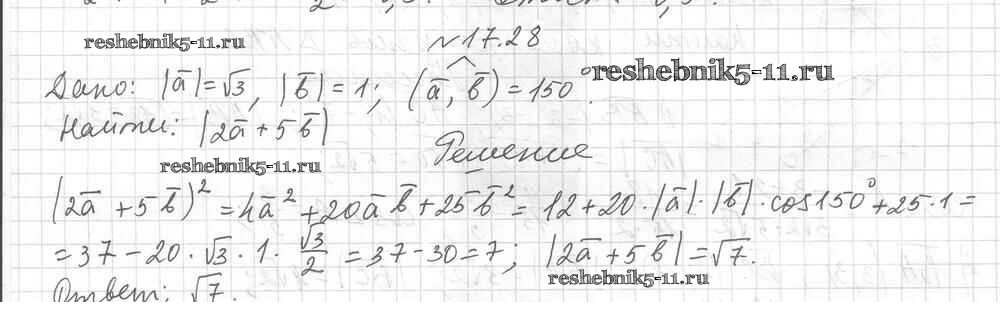 reshebnik5-11.ru
№17.28
Дано: |a̅|=√3, |b̅|=1; (a̅, b̅)=150°.
reshebnik5-11.ru
Найти: |2a̅+5b̅|
reshebnik5-11.ru
Решение
(2a̅+5b̅)²=4a̅²+20a̅b̅+25b̅²=12+20·|a̅|·|b̅|·cos150°+25·1=
=37-20·√3·1·√3/2=37-30=7; |2a̅+5b̅|=√7.
reshebnik5-11.ru
Ответ: √7.